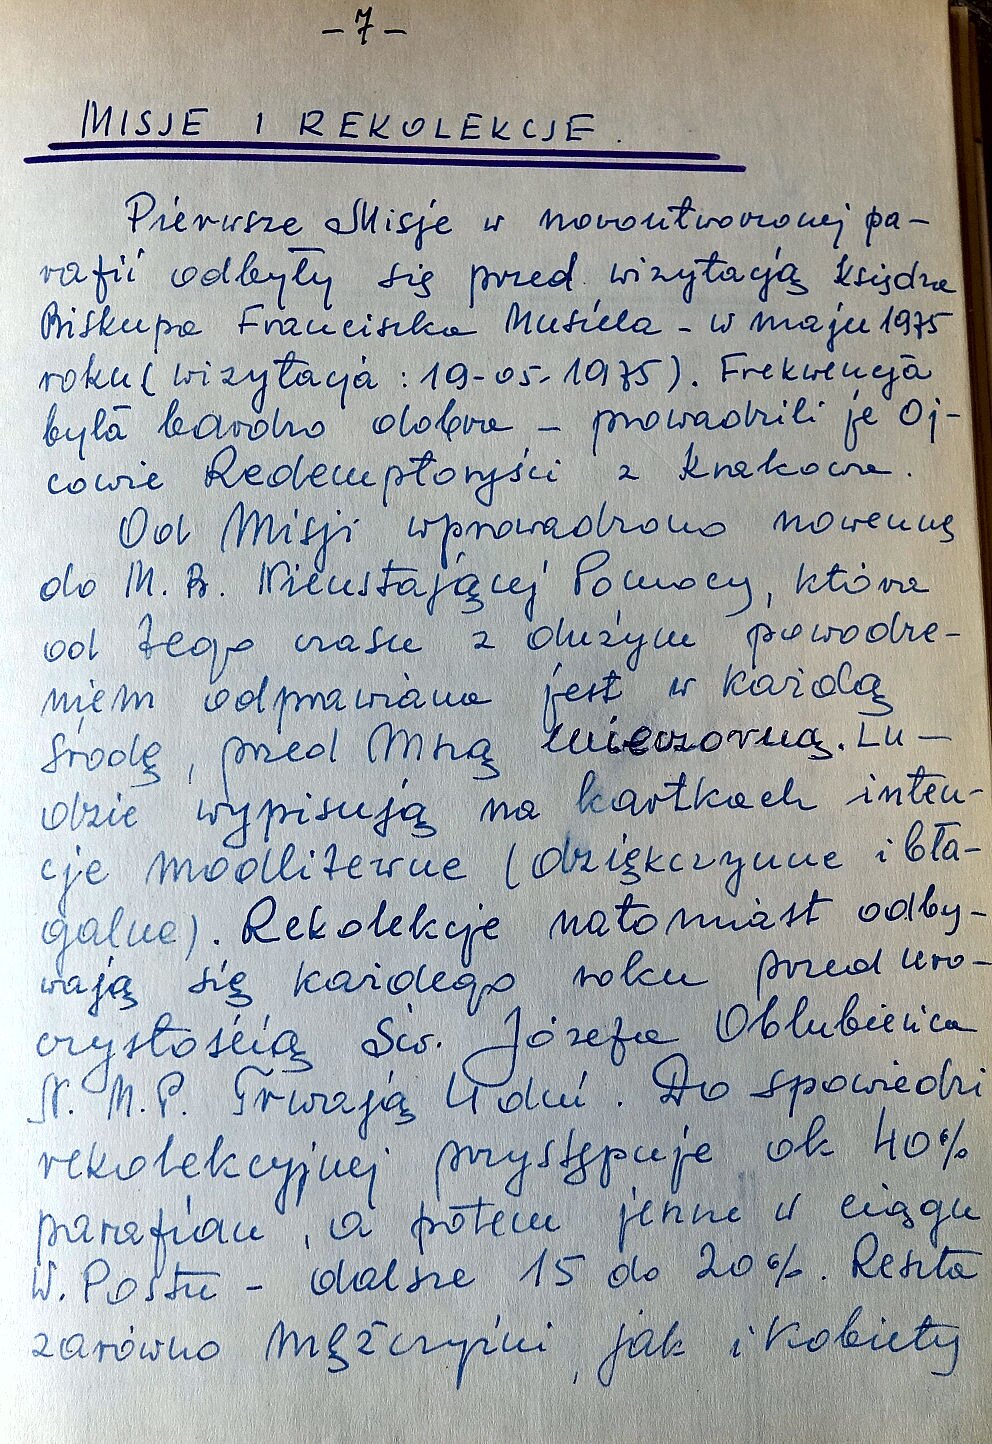 -7-
MISJE I REKOLEKCJE.
Pierwsze Misje w nowoutworzonej pa-
rafii odbyły się przed wizytacją Księdza
Biskupa Franciszka Musiela - w maju 1975
roku (wizytacja : 19-05-1975). Frekwencja
była bardzo dobra - prowadzili je Oj-
cowie Redemptoryści z Krakowa.
Od Misji wprowadzono nowennę
do M. B. Nieustającej Pomocy, która
od tego czasu z dużym powodze-
niem odprawiana jest w każdą
środę, przed Mszą wieczorną. Lu-
dzie wypisują na kartkach inten-
cje modlitewne (dziękczynne i bła-
galne). Rekolekcje natomiast odby-
wają się każdego roku przed uro-
czystością Św. Józefa Oblubieńca
N. M. P. Trwają 4 dni. Do spowiedzi
rekolekcyjnej przystępuje ok 40%
parafian, a potem jeszcze w ciągu
W. Postu - dalsze 15 do 20%. Reszta
zarówno mężczyźni, jak i kobiety